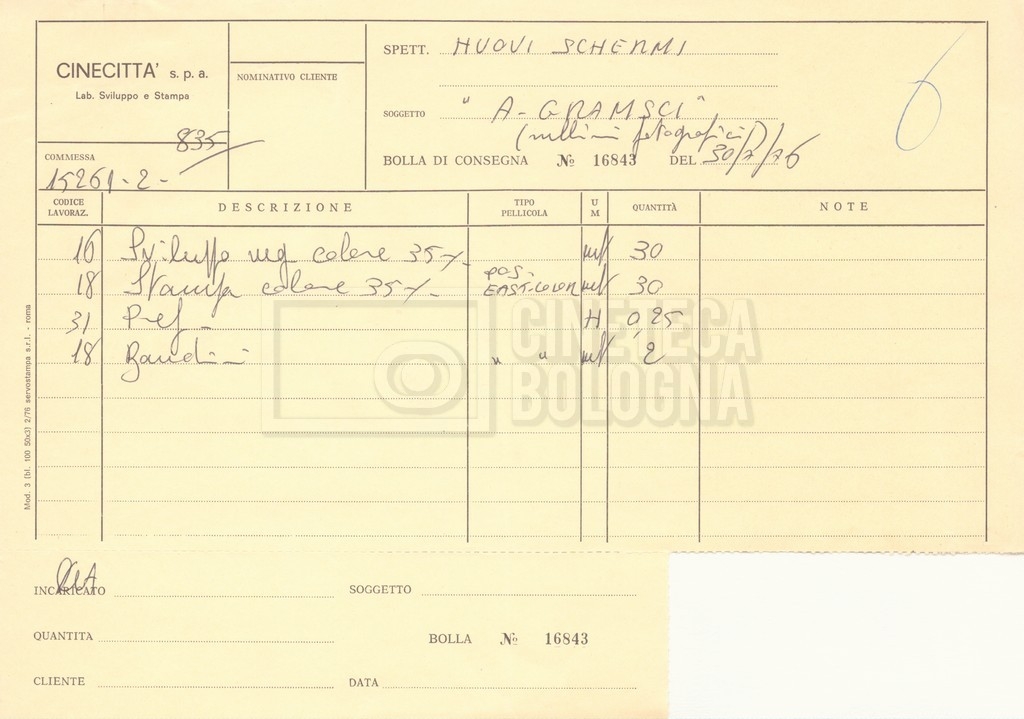 CINECITTA' s. p. a.
Lab. Sviluppo e Stampa
835
COMMESSA
15261-2-
NOMINATIVO CLIENTE
SPETT. NUOVI SCHERMI
SOGGETTO " A-GRAMSCI"
(rullini fotografici)
BOLLA DI CONSEGNA № 16843 DEL 30/7/76
6
CODICE LAVORAZ. DESCRIZIONE TIPO PELLICOLA U M QUANTITÀ NOTE
16 Sviluppo neg colore 35 mt 30
18 Stampa colore 35 pos. EAST-COLOR mt 30
31 Pref - H 0,25
18 Bandini " " mt 2
CINETECA
BOLOGNA
Mod. 3 (bl. 100 50x3) 2/76 servostampa s.r.l. - roma
INCARICATO
SOGGETTO
QUANTITA
BOLLA № 16843
CLIENTE
DATA